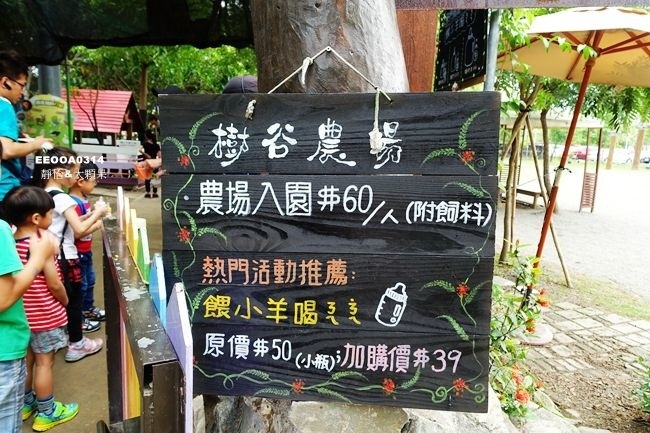 EEOOA0314
靜怡&大顆呆
樹谷農場
農場入園 $60/人 (附飼料)
熱門活動推薦:
餵小羊喝ㄋㄟㄋㄟ
原價$50(小瓶);加購價$39